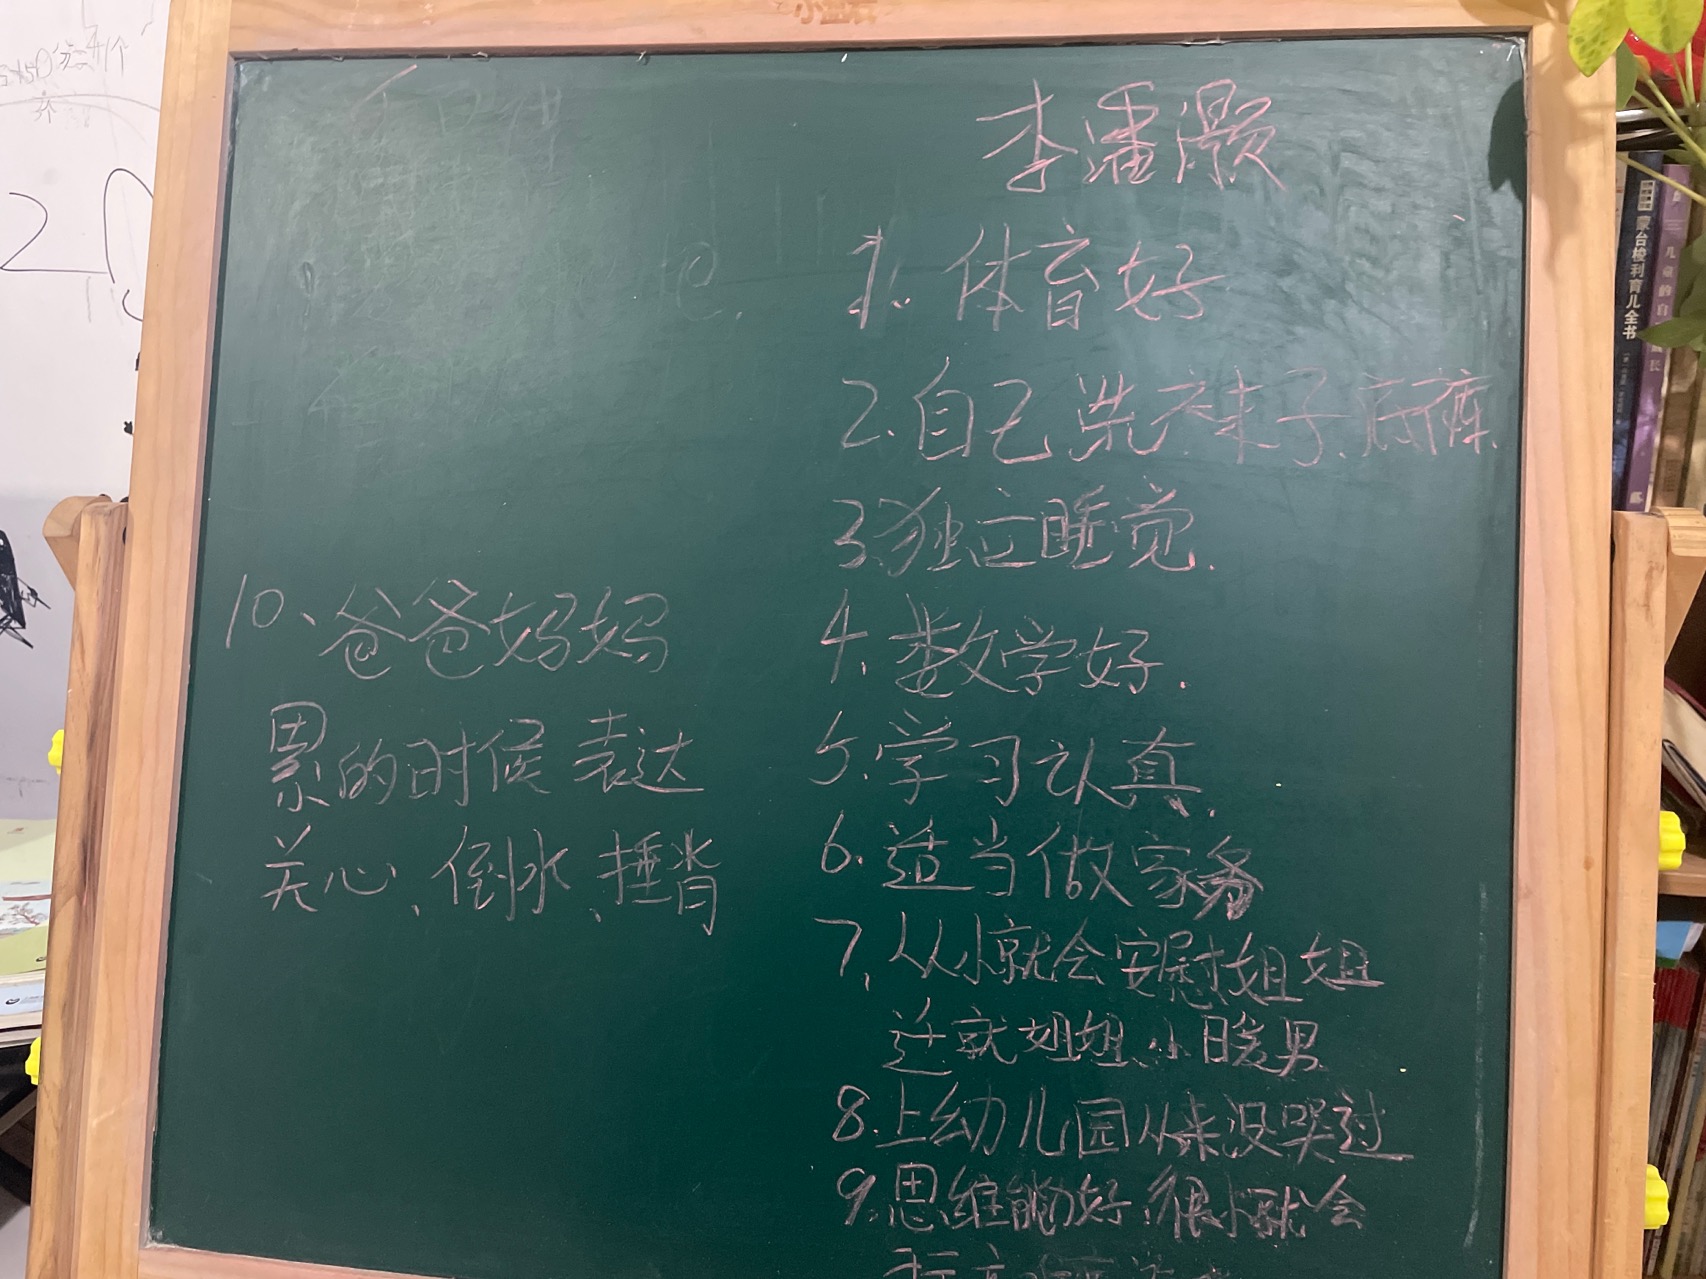 李潘灏
1. 体育好
2. 自己洗衣袜子、内裤.
3. 独立睡觉.
4. 数学好.
5. 学习认真.
6. 适当做家务
7、从小就会安慰姐姐
迁就姐姐、小暖男.
8. 上幼儿园从来没哭过
9. 思维能力好、很小就会
10、爸爸妈妈
累的时候表达
关心、倒水、捶背
蒙台梭利育儿全书
儿童的自